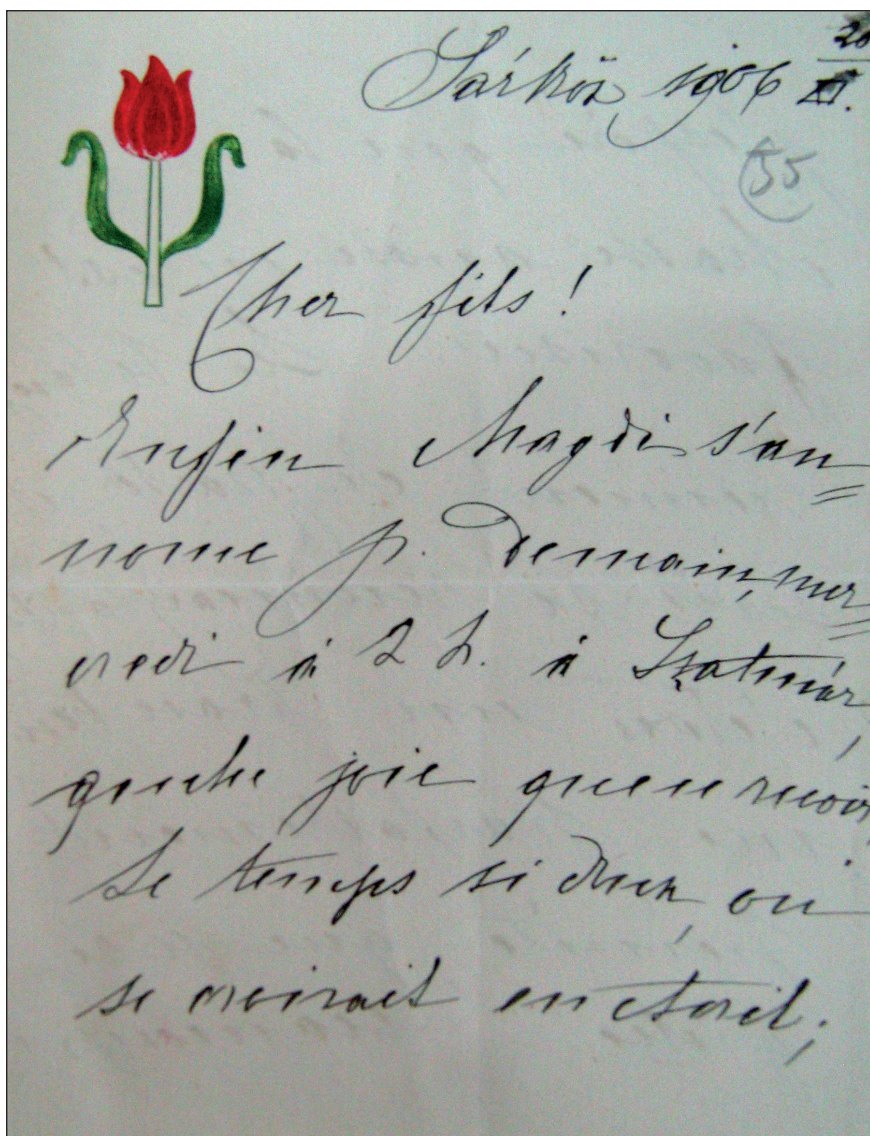 Sárköz, 1906 20/XI.
55
Cher fils!
Enfin Magdi s'an=
nonce p. demain, mer=
credi à 2 h. à Szatmár,
quelle joie
Le temps si doux, on
se croirait en Avril;